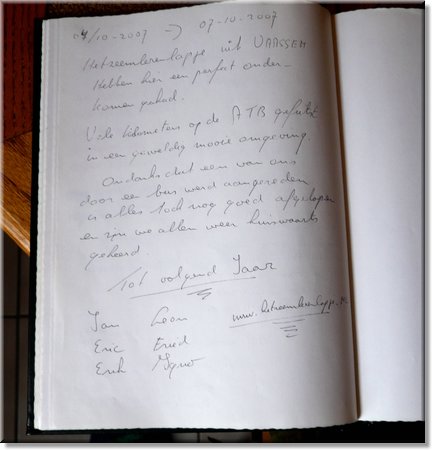 04/10-2007 -> 07-10-2007
Het zeemlerenlapje uit VAASSEN
Hebben hier een perfect onder-
komen gehad.
Vele kilometers op de ATB gefietst
in een geweldig mooie omgeving.
Ondanks dat een van ons
door een bus werd aangereden
is alles toch nog goed afgelopen
en zijn we allen weer huiswaarts
gekeerd.
Tot volgend Jaar
Jan Leon
www.hetzeemlerenlapje.nl
Eric Fried
Erik